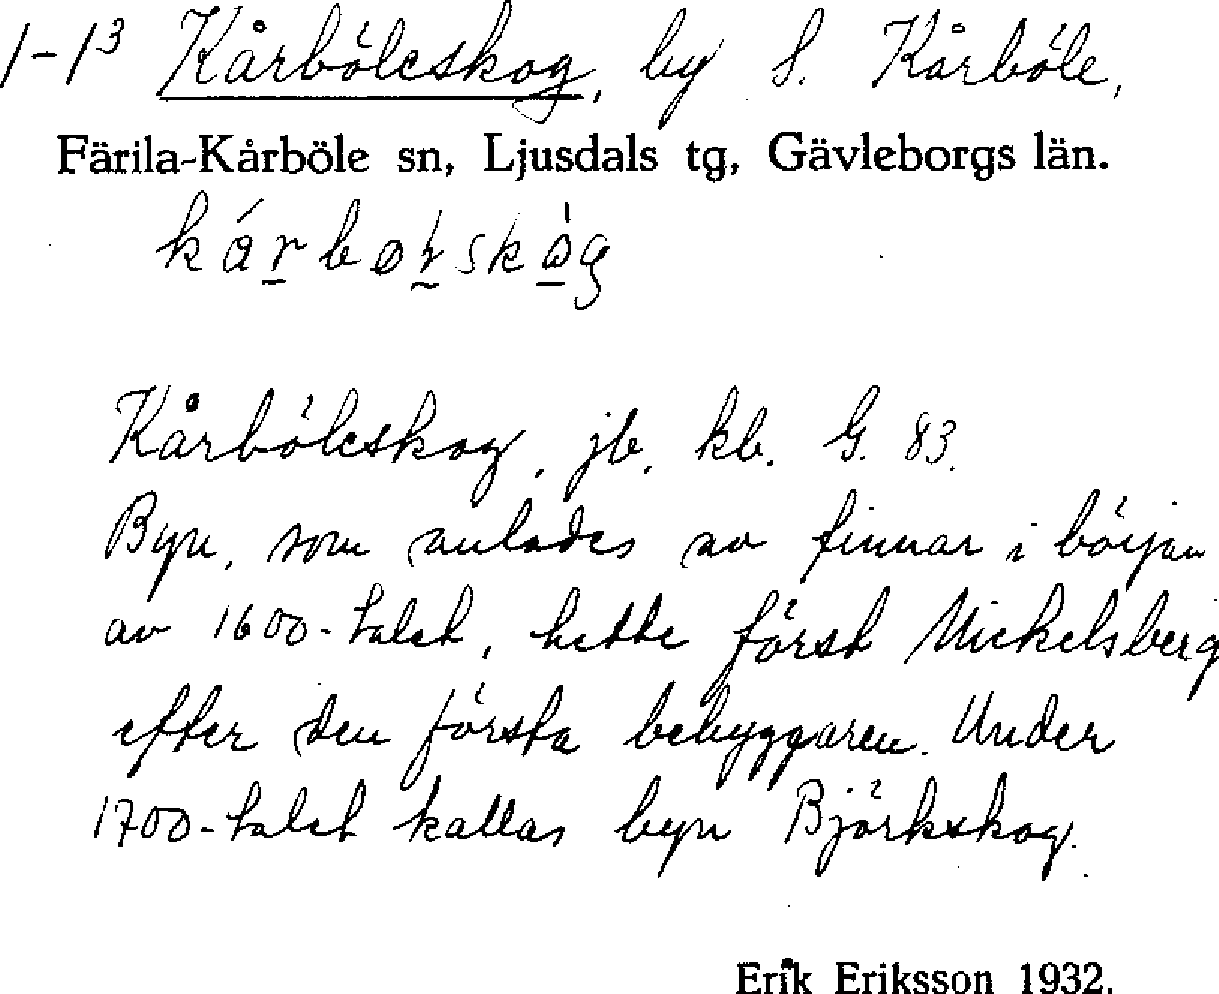 1-1³ Kårböleskog, by f. Kårböle,
Färila-Kårböle sn, Ljusdals tg, Gävleborgs län.
Kårböleskog, jb. kb. G. 83.
Byn, som anlades av finnar i början
av 1600-talet, hette först Mickelsberg
efter den första bebyggaren. Under
1700-talet kallas byn Björkskog.
Erik Eriksson 1932.